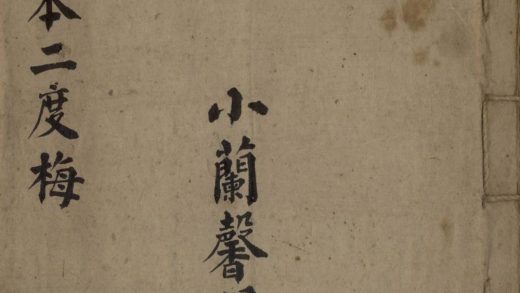 小蘭馨
本二度梅